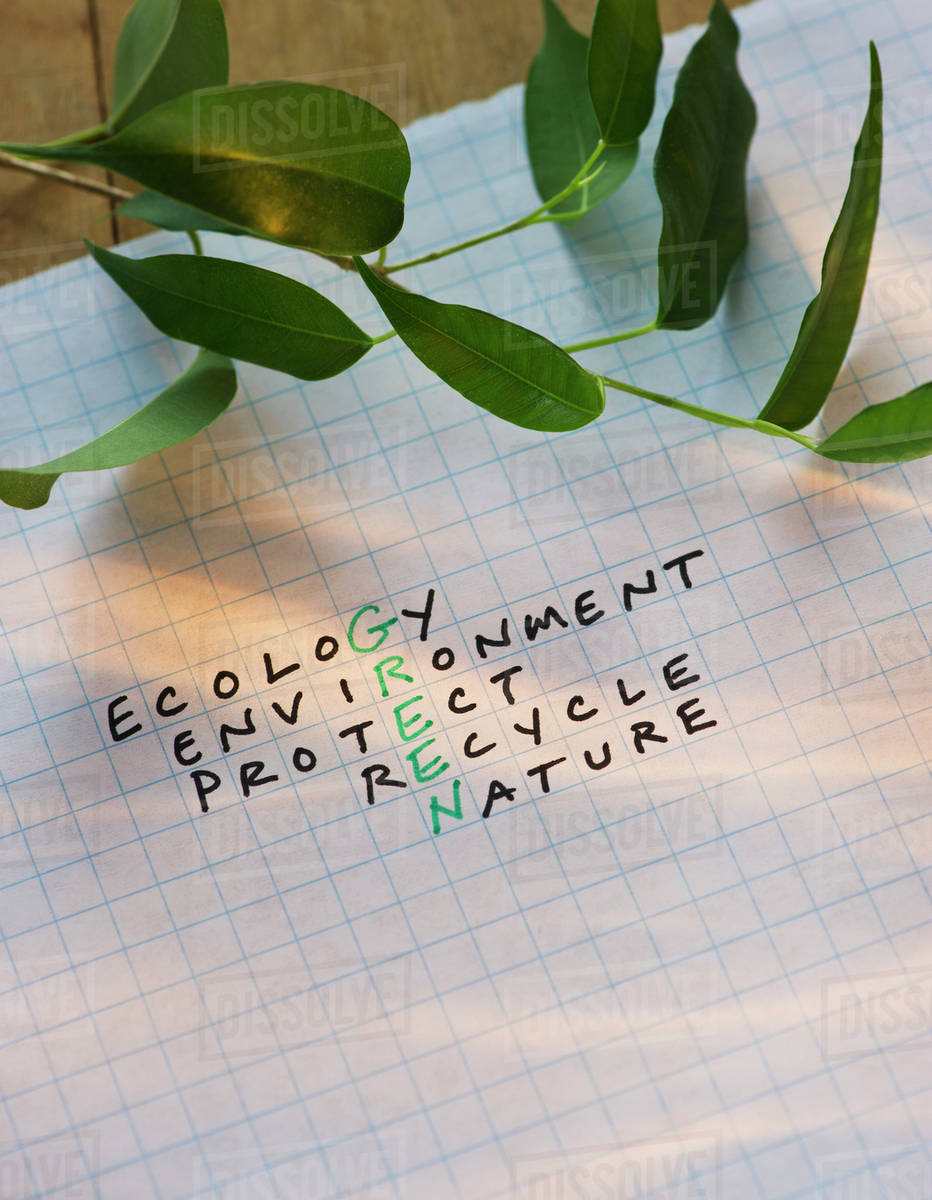 ECOLOGY
ENVIRONMENT
PROTECT
RECYCLE
NATURE
DISSOLVE